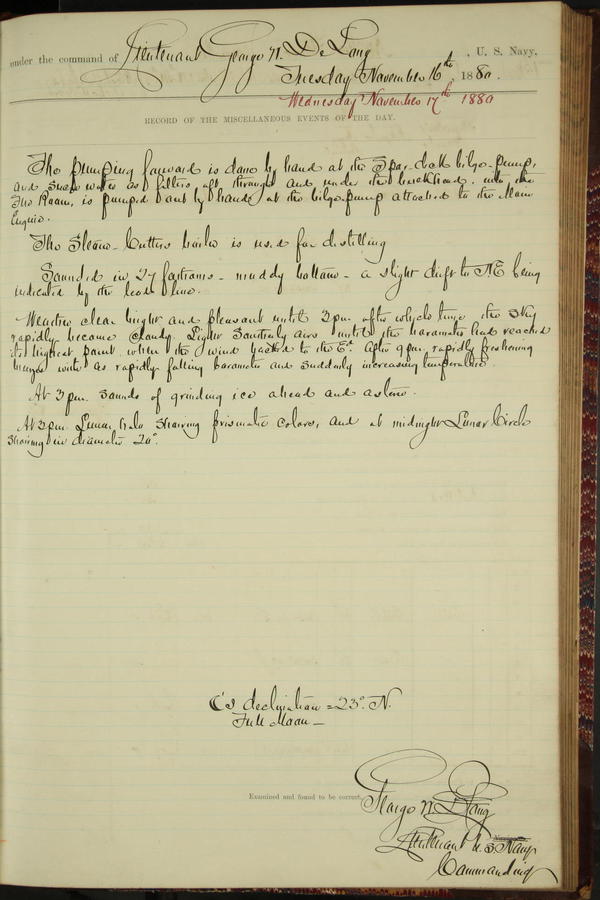 under the command of Lieutenant George W. De Long, U. S. Navy,
Tuesday November 16th, 1880.
Wednesday November 17th 1880
RECORD OF THE MISCELLANEOUS EVENTS OF THE DAY.
The pumping forward is done by hand at the Spar deck bilge-pump,
and such water as filters aft through and under the bulkhead into the
Fire Room, is pumped out by hand at the bilge pump attached to the Main
Engine.
The Steam-Cutters boiler is used for distilling
Sounded in 27 fathoms - muddy bottom - a slight drift to NE being
indicated by the lead line.
Weather clear bright and pleasant until 3 pm after which time the sky
rapidly became cloudy. Light Southerly airs until the barometer had reached
its highest point when the wind backed to the Ed. After 9 pm. rapidly freshening
breeze with as rapidly falling barometer and suddenly increasing temperature.
At 3 pm. sounds of grinding ice ahead and astern.
At 3 pm. Lunar halo showing prismatic colors, and at midnight Lunar Circle
showing in diameter 20°.
☾'s declination = 23° N.
Full Moon -
Examined and found to be correct.
George W. De Long
Lieutenant U.S. Navy
Commanding